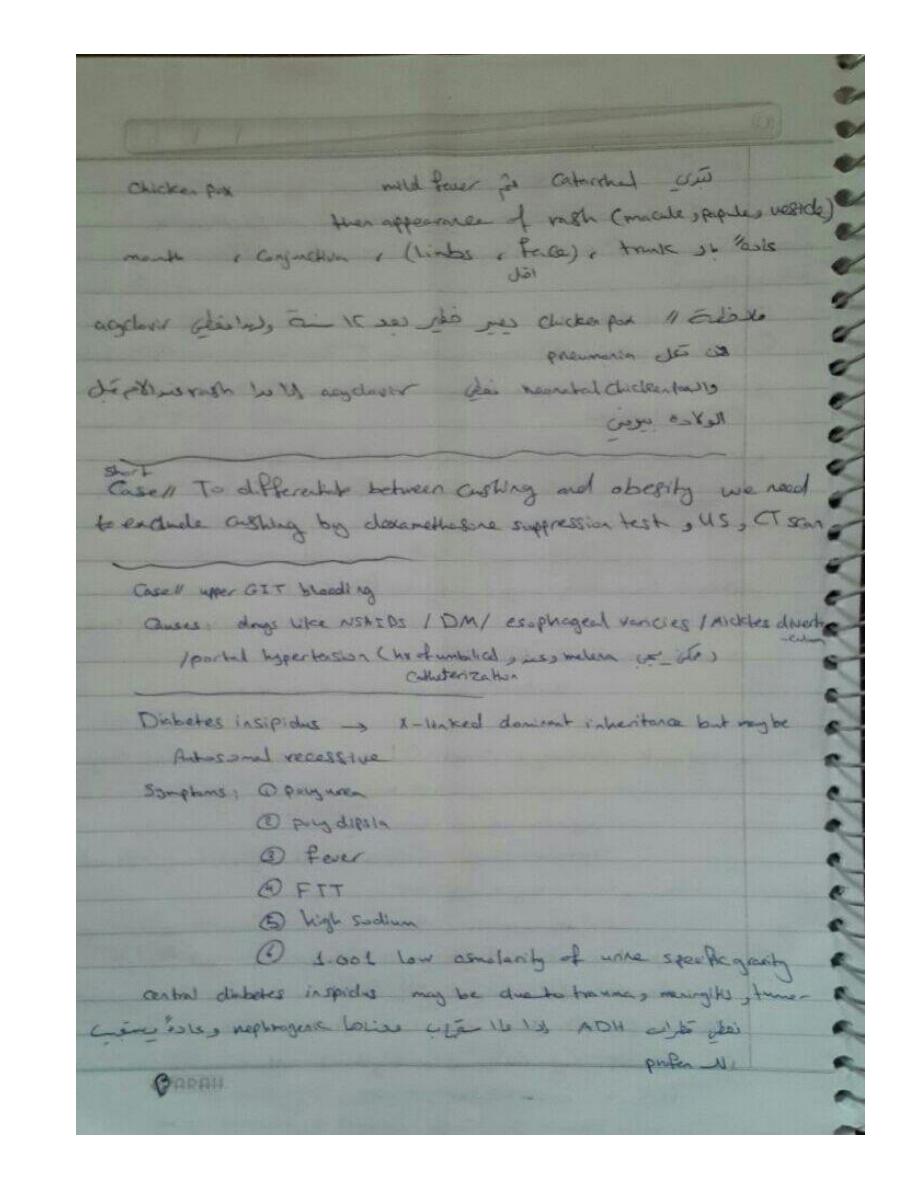 Chicken pox mild fever ثم catarrhal تبدي
then appearance of rash (macule, papule, vesicle)
عادةً بال trunk ، (limbs ، face) ، conjunctiva ، mouth
اقل
ملاحظة // chicken pox يصير خطير بعد ١٢ سنة ولهذا نعطي acyclovir
pneumonia
neonatal chickenpox نعطي acyclovir اذا بدا rash عند الام قبل
الولادة بيومين
short
Case// To differentiate between cushing and obesity we need
to exclude cushing by dexamethasone suppression test, US, CT scan
Case// upper GIT bleeding
Causes: drugs like NSAIDs / DM/ esophageal varicies / Mickles diverti
-culum
/portal hypertesion (hx of umbilical melena
catheterization
Diabetes insipidus → X-linked dominant inheritance but may be
Autosomal recessive
Symptoms: ① polyurea
② polydipsia
③ fever
④ FTT
⑤ high sodium
⑥ 1.001 low osmolarity of urine specific gravity
central diabetes inspidus may be due to trauma, meningitis, tumor
نعطي قطرات ADH اذا ما استجاب معناها nephrogenic وعادةً يستجيب
FARAH